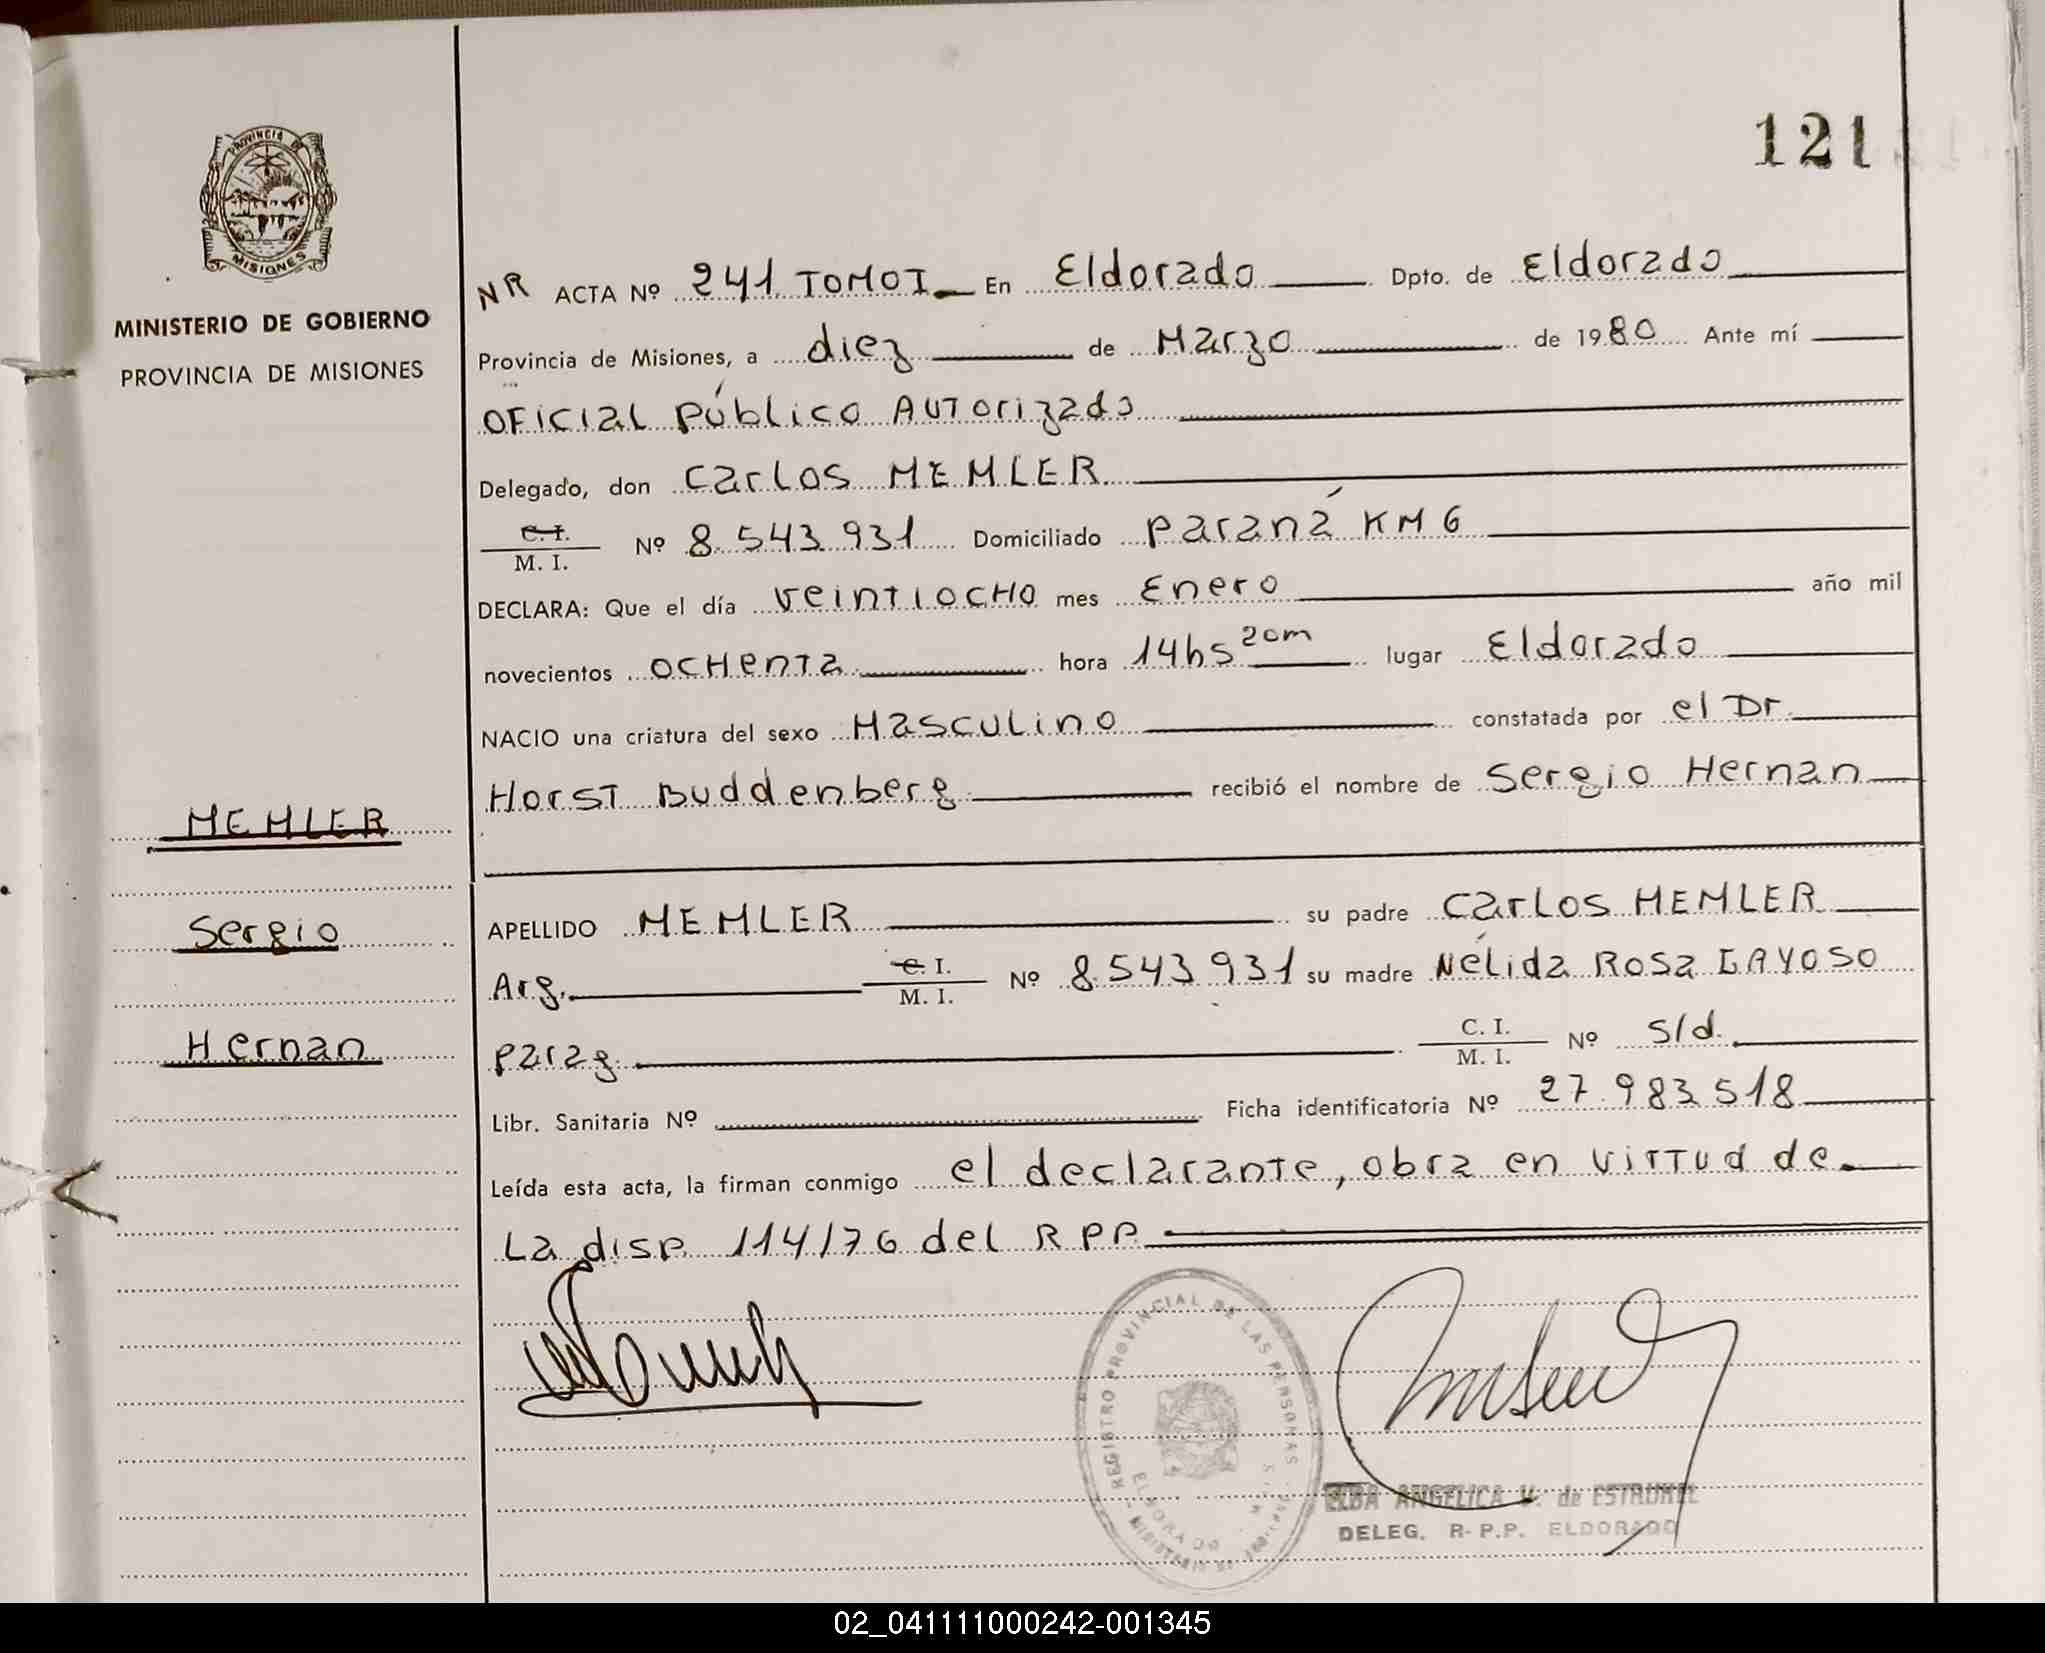 121
PROVINCIA DE
MISIONES
MINISTERIO DE GOBIERNO
PROVINCIA DE MISIONES
MEMLER
Sergio
Hernan
NR ACTA Nº 241 TOMO I En Eldorado Dpto. de Eldorado
Provincia de Misiones, a diez de Marzo de 1980 Ante mí
OFICIAL PÚBLICO AUTORIZADO
Delegado, don Carlos MEMLER
C. I. / M. I. Nº 8.543.931 Domiciliado Paraná KM 6
DECLARA: Que el día veintiocho mes Enero año mil
novecientos ochenta hora 14hs 20m lugar Eldorado
NACIO una criatura del sexo Masculino constatada por el Dr.
Horst Buddenberg recibió el nombre de Sergio Hernan
APELLIDO MEMLER su padre Carlos MEMLER
Arg. C. I. / M. I. Nº 8.543.931 su madre Nélida Rosa GAYOSO
Parag. C. I. / M. I. Nº s/d.
Libr. Sanitaria Nº Ficha identificatoria Nº 27.983.518
Leída esta acta, la firman conmigo el declarante, obra en virtud de
La disp. 114/76 del R P P.
REGISTRO PROVINCIAL DE LAS PERSONAS
ELDORADO
ANGELICA V. de
DELEG. R-P.P. ELDORADO
02_041111000242-001345